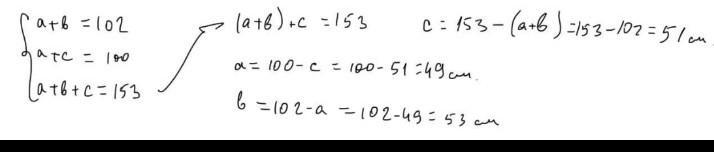 a+b=102
a+c=100
a+b+c=153
(a+b)+c=153
c=153-(a+b)=153-102=51 см
a=100-c=100-51=49 см.
b=102-a=102-49=53 см